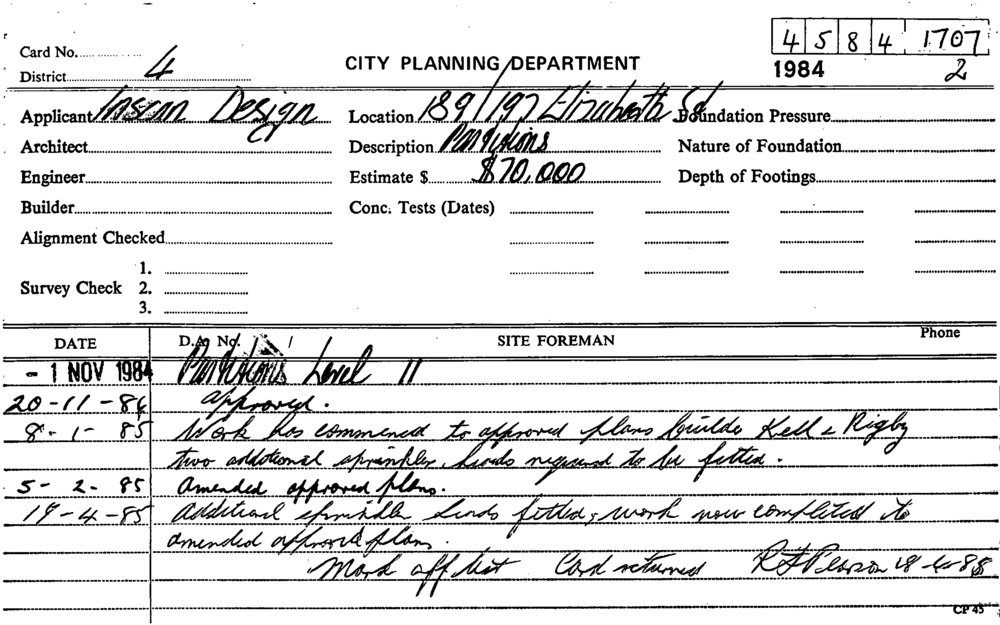 4584 1707
Card No.
1984 2
District 4
CITY PLANNING DEPARTMENT
Applicant Design Location 189/197 Elizabeth St Foundation Pressure
Architect Description Partitions Nature of Foundation
Engineer Estimate $ $70,000 Depth of Footings
Builder Conc. Tests (Dates)
Alignment Checked
1.
Survey Check 2.
3.
DATE D.A. No. / SITE FOREMAN Phone
- 1 NOV 1984 Partitions Level 11
20-11-84 approved.
8-1-85 Work has commenced to approved plans builder Kell & Rigby
two additional sprinkler heads required to be fitted.
5-2-85 Amended approved plans.
19-4-85 Additional sprinkler heads fitted, work now completed to
amended approved plans.
Mark off list Card returned R F Pearson
CP 45